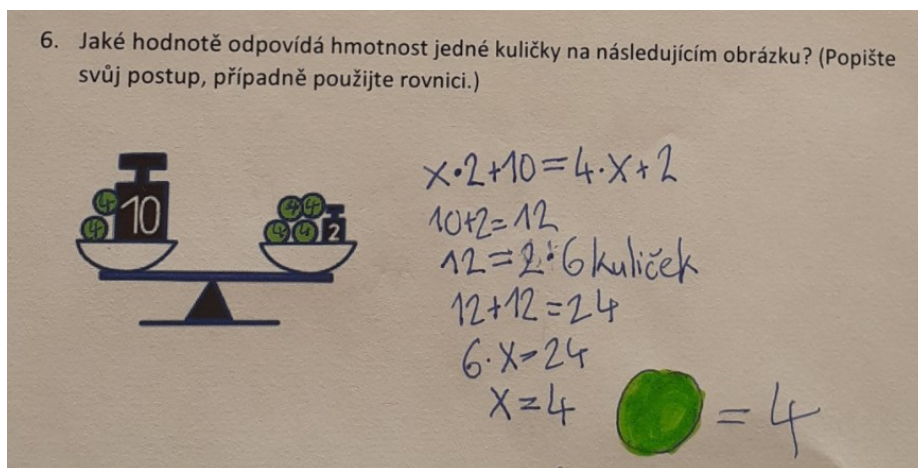 6. Jaké hodnotě odpovídá hmotnost jedné kuličky na následujícím obrázku? (Popište
svůj postup, případně použijte rovnici.)
4 10
4
4 4
4 4 2
x·2+10=4·x+2
10+2=12
12=2·6 kuliček
12+12=24
6·x=24
x=4
= 4